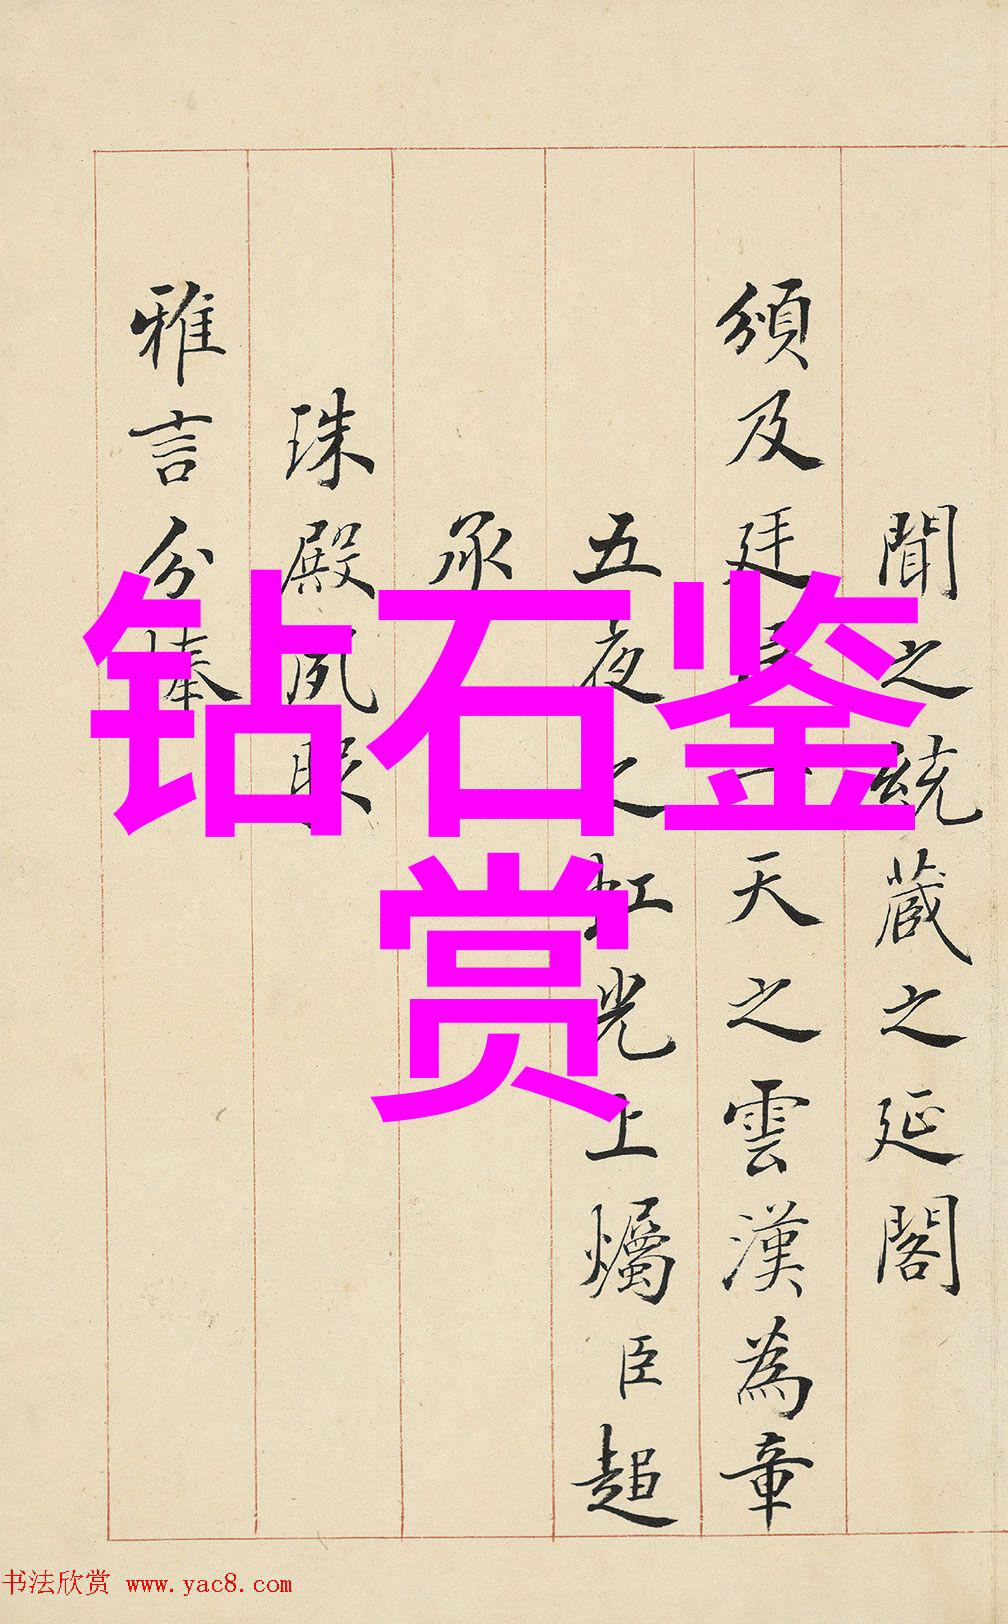 聞之統蔵之延閣
頒及廷天之雲漢為章
五夜之虹光上爥臣超
承
珠殿夙
雅言分捧
钻石鉴
赏
书法欣赏 www.yac8.com